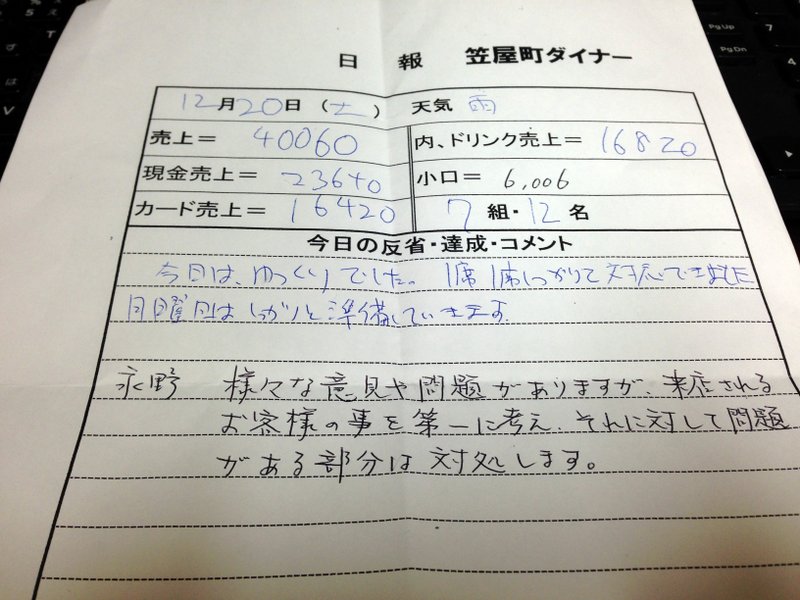 日 報 笠屋町ダイナー
12月20日(土) 天気 雨
売上= 40060 内、ドリンク売上= 16820
現金売上= 23640 小口= 6,006
カード売上= 16420 7組・12名
今日の反省・達成・コメント
今日は、ゆっくりでした。1席1席しっかりと対応できました
日曜日はしっかりと準備していきます。
永野 様々な意見や問題がありますが、来店される
お客様の事を第一に考え、それに対して問題
がある部分は対処します。
PgUp
PgDn
T
V
4